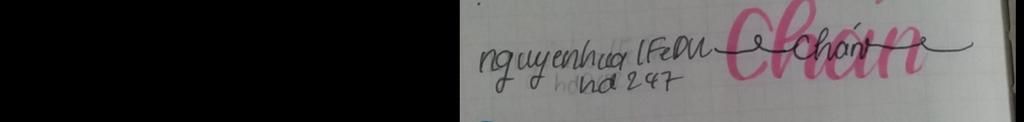 nguyenhua IFeDU Chán Chán
hd 247